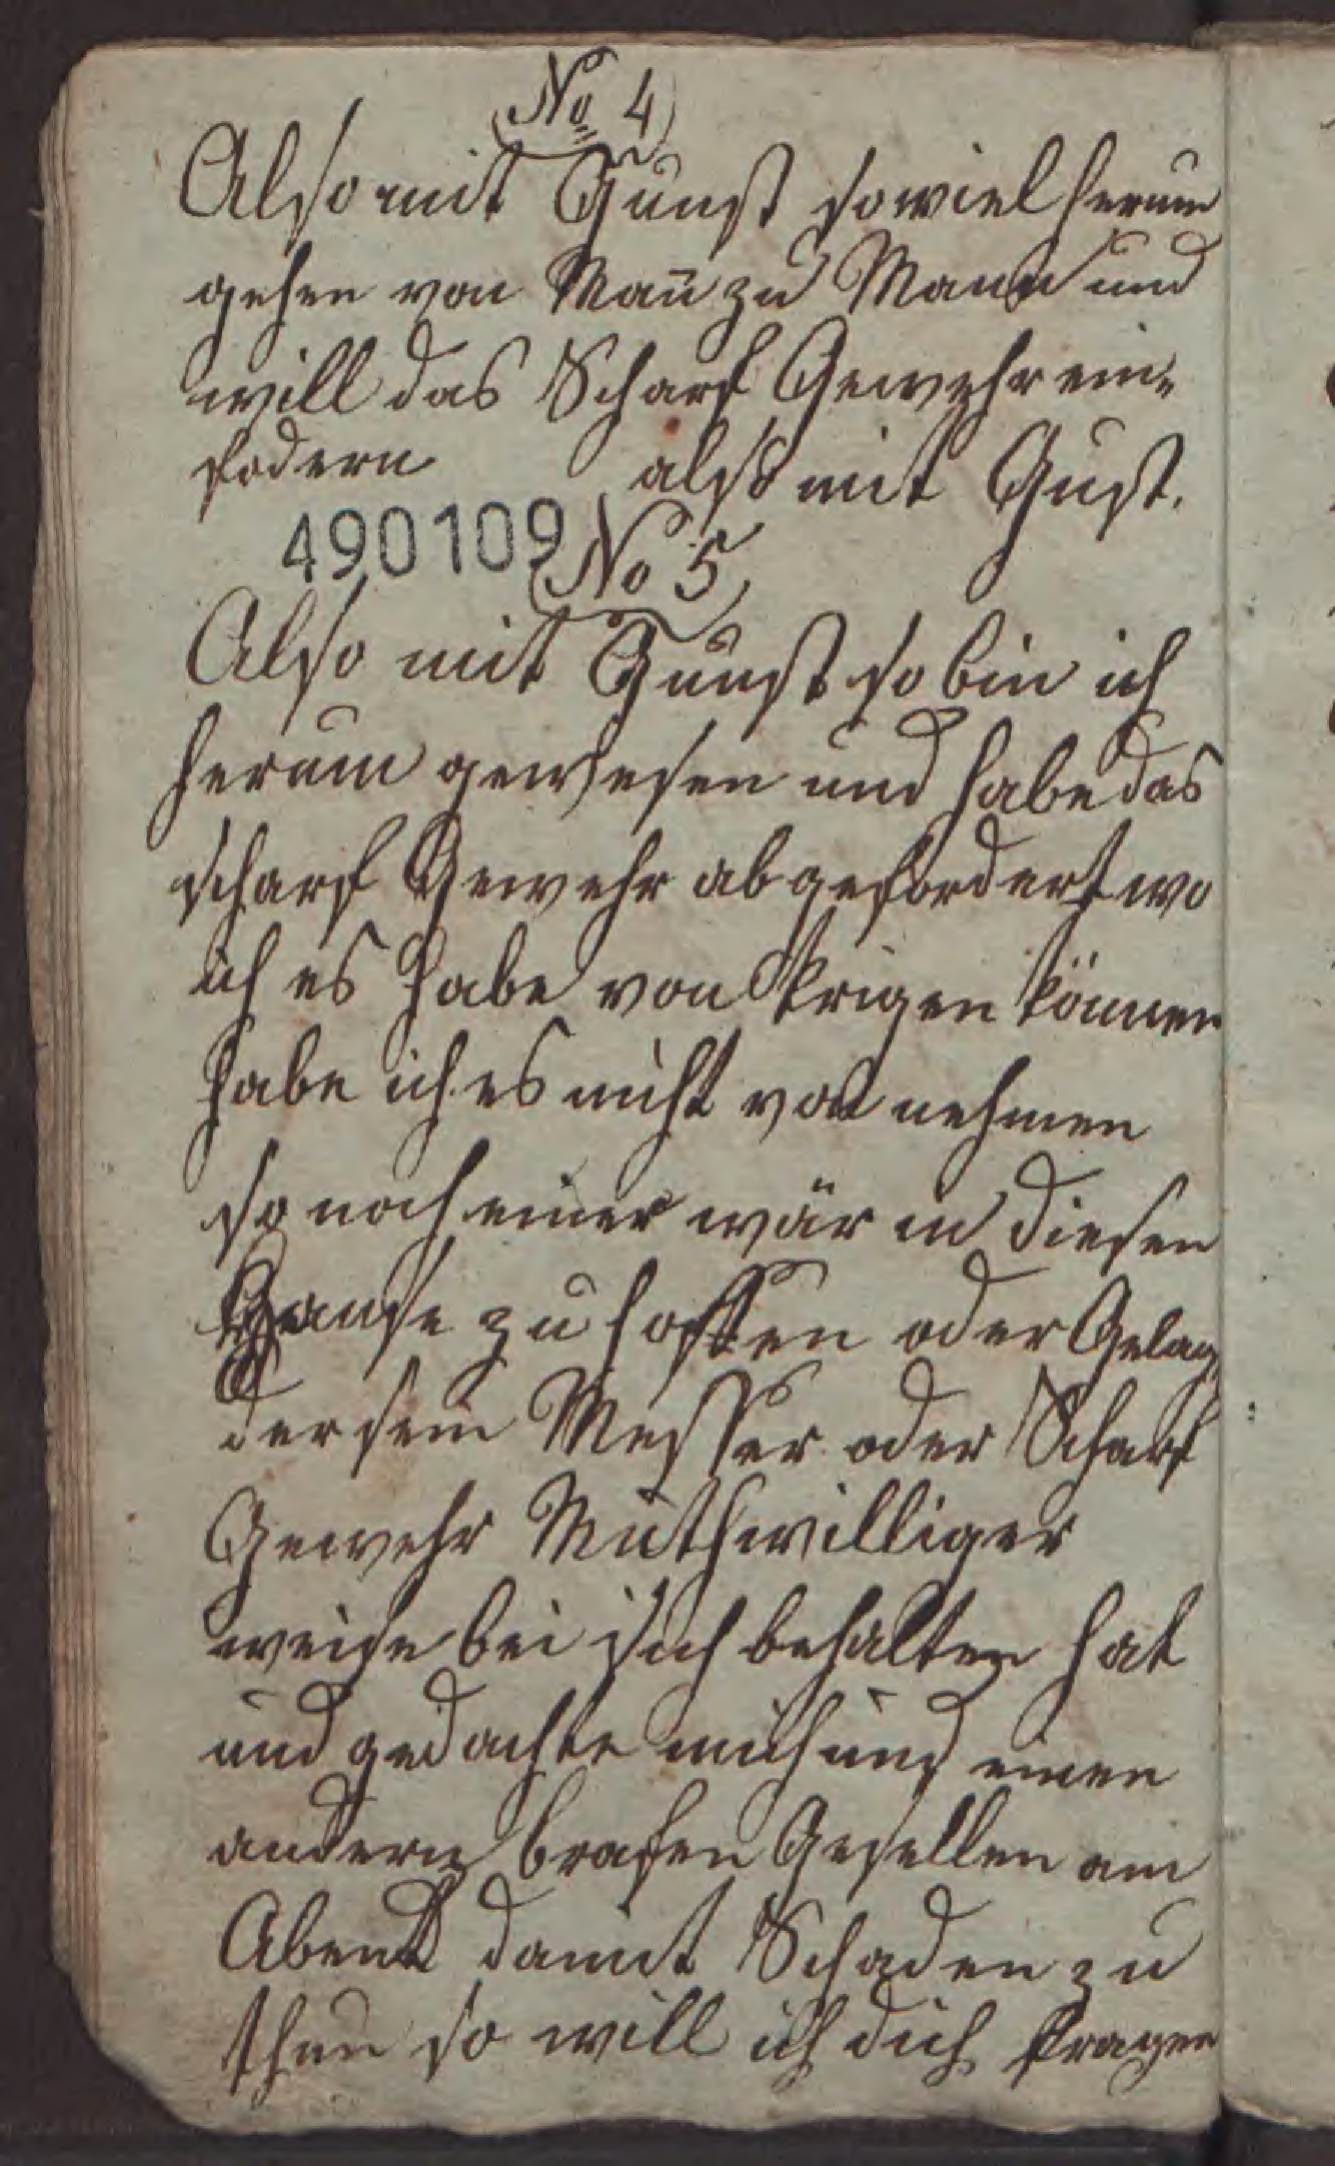 No 4
Also mit Gunst so wiel herum
gehen von Mañ zu Mann und
will das Scharf Gewehr ein-
fodern also mit Gust.
490109
No 5
Also mit Gunst so bin ich
herum gewesen und habe das
scharf Gewehr abgefordert wo
ich es habe von krigen können
habe ich es nicht von nehmen
so noch einer wär in diesen
Hause zu hoffen oder Gelag
der sein Messer oder Scharf
Gewehr Muthwilliger
weise bei sich behalten hat
und gedachte mich und einen
andern brafen Gesellen am
Abend damit Schaden zu
thun so will ich dich fragen